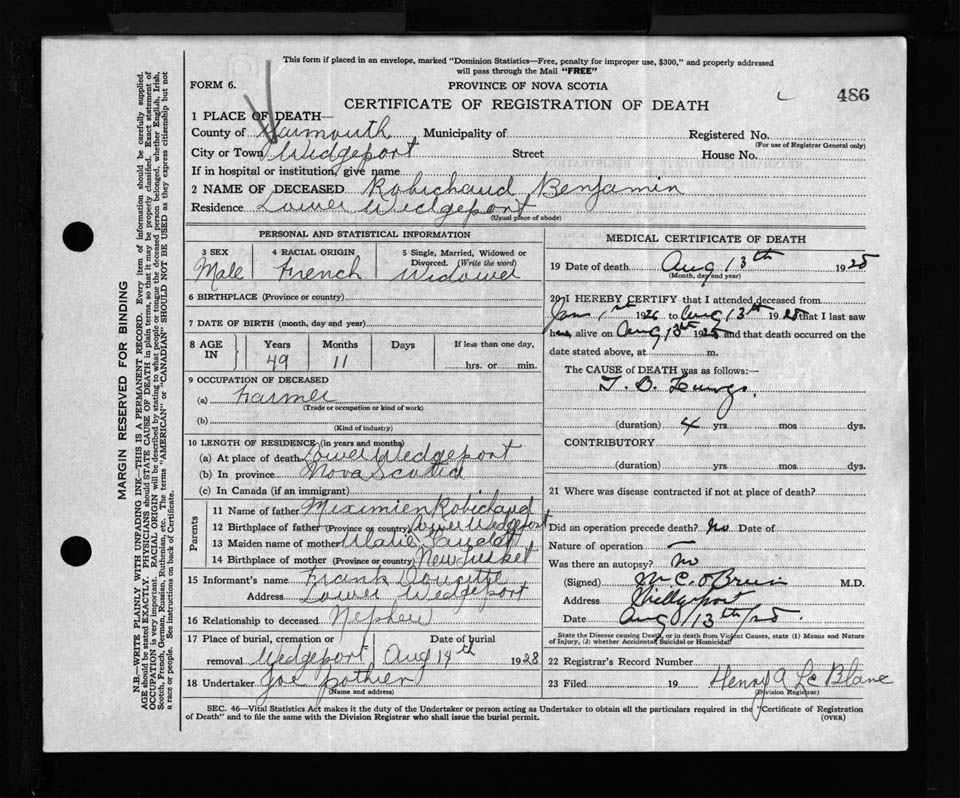 This form if placed in an envelope, marked "Dominion Statistics—Free, penalty for improper use, $300," and properly addressed
will pass through the Mail "FREE"
FORM 6.
PROVINCE OF NOVA SCOTIA
486
CERTIFICATE OF REGISTRATION OF DEATH
1 PLACE OF DEATH—
County of Yarmouth Municipality of Registered No.
(For use of Registrar General only)
City or Town Wedgeport Street House No.
If in hospital or institution, give name
2 NAME OF DECEASED Robichaud Benjamin
Residence Lower Wedgeport
(Usual place of abode)
PERSONAL AND STATISTICAL INFORMATION
3 SEX 4 RACIAL ORIGIN 5 Single, Married, Widowed or
Divorced. (Write the word)
Male French Widower
6 BIRTHPLACE (Province or country)
7 DATE OF BIRTH (month, day and year)
8 AGE IN Years Months Days If less than one day,
49 11 hrs. or min.
9 OCCUPATION OF DECEASED
(a) Farmer
(Trade or occupation or kind of work)
(b)
(Kind of industry)
10 LENGTH OF RESIDENCE (in years and months)
(a) At place of death Lower Wedgeport
(b) In province Nova Scotia
(c) In Canada (if an immigrant)
Parents
11 Name of father Robichaud
12 Birthplace of father (Province or country) Lower Wedgeport
13 Maiden name of mother Marie
14 Birthplace of mother (Province or country) New Tusket
15 Informant's name Frank Doucette
Address Lower Wedgeport
16 Relationship to deceased Nephew
17 Place of burial, cremation or Date of burial
removal Wedgeport Aug 14th 1928
18 Undertaker Joe Pothier
(Name and address)
MEDICAL CERTIFICATE OF DEATH
19 Date of death Aug 13th 1928
(Month, day and year)
20 I HEREBY CERTIFY that I attended deceased from
1st 1926 to Aug 13th 1928 that I last saw
him alive on Aug 13th 1928 and that death occurred on the
date stated above, at m.
The CAUSE of DEATH was as follows:—
T. B. Lungs.
(duration) 4 yrs. mos. dys.
CONTRIBUTORY
(duration) yrs. mos. dys.
21 Where was disease contracted if not at place of death?
Did an operation precede death? No Date of
Nature of operation —
Was there an autopsy? No
(Signed) M. C. O'Brien M.D.
Address Wedgeport
Date Aug 13th/28.
State the Disease causing Death, or in death from Violent Causes, state (1) Means and Nature
of Injury, (2) whether Accidental, Suicidal or Homicidal.
22 Registrar's Record Number
23 Filed 19 Henry A Le Blanc
(Division Registrar)
SEC. 46—Vital Statistics Act makes it the duty of the Undertaker or person acting as Undertaker to obtain all the particulars required in the "Certificate of Registration
of Death" and to file the same with the Division Registrar who shall issue the burial permit.
(OVER)
MARGIN RESERVED FOR BINDING
N.B.—WRITE PLAINLY WITH UNFADING INK—THIS IS A PERMANENT RECORD. Every item of information should be carefully supplied.
AGE should be stated EXACTLY. PHYSICIANS should STATE CAUSE OF DEATH in plain terms, so that it may be properly classified. Exact statement of
OCCUPATION is very important. RACIAL ORIGIN will be described by stating to what people or tongue the deceased person belonged, whether English, Irish,
Scotch, French, German, Russian, Ruthenian, etc. The terms "AMERICAN" or "CANADIAN" SHOULD NOT BE USED as they express citizenship but not
a race or people. See instructions on back of Certificate.